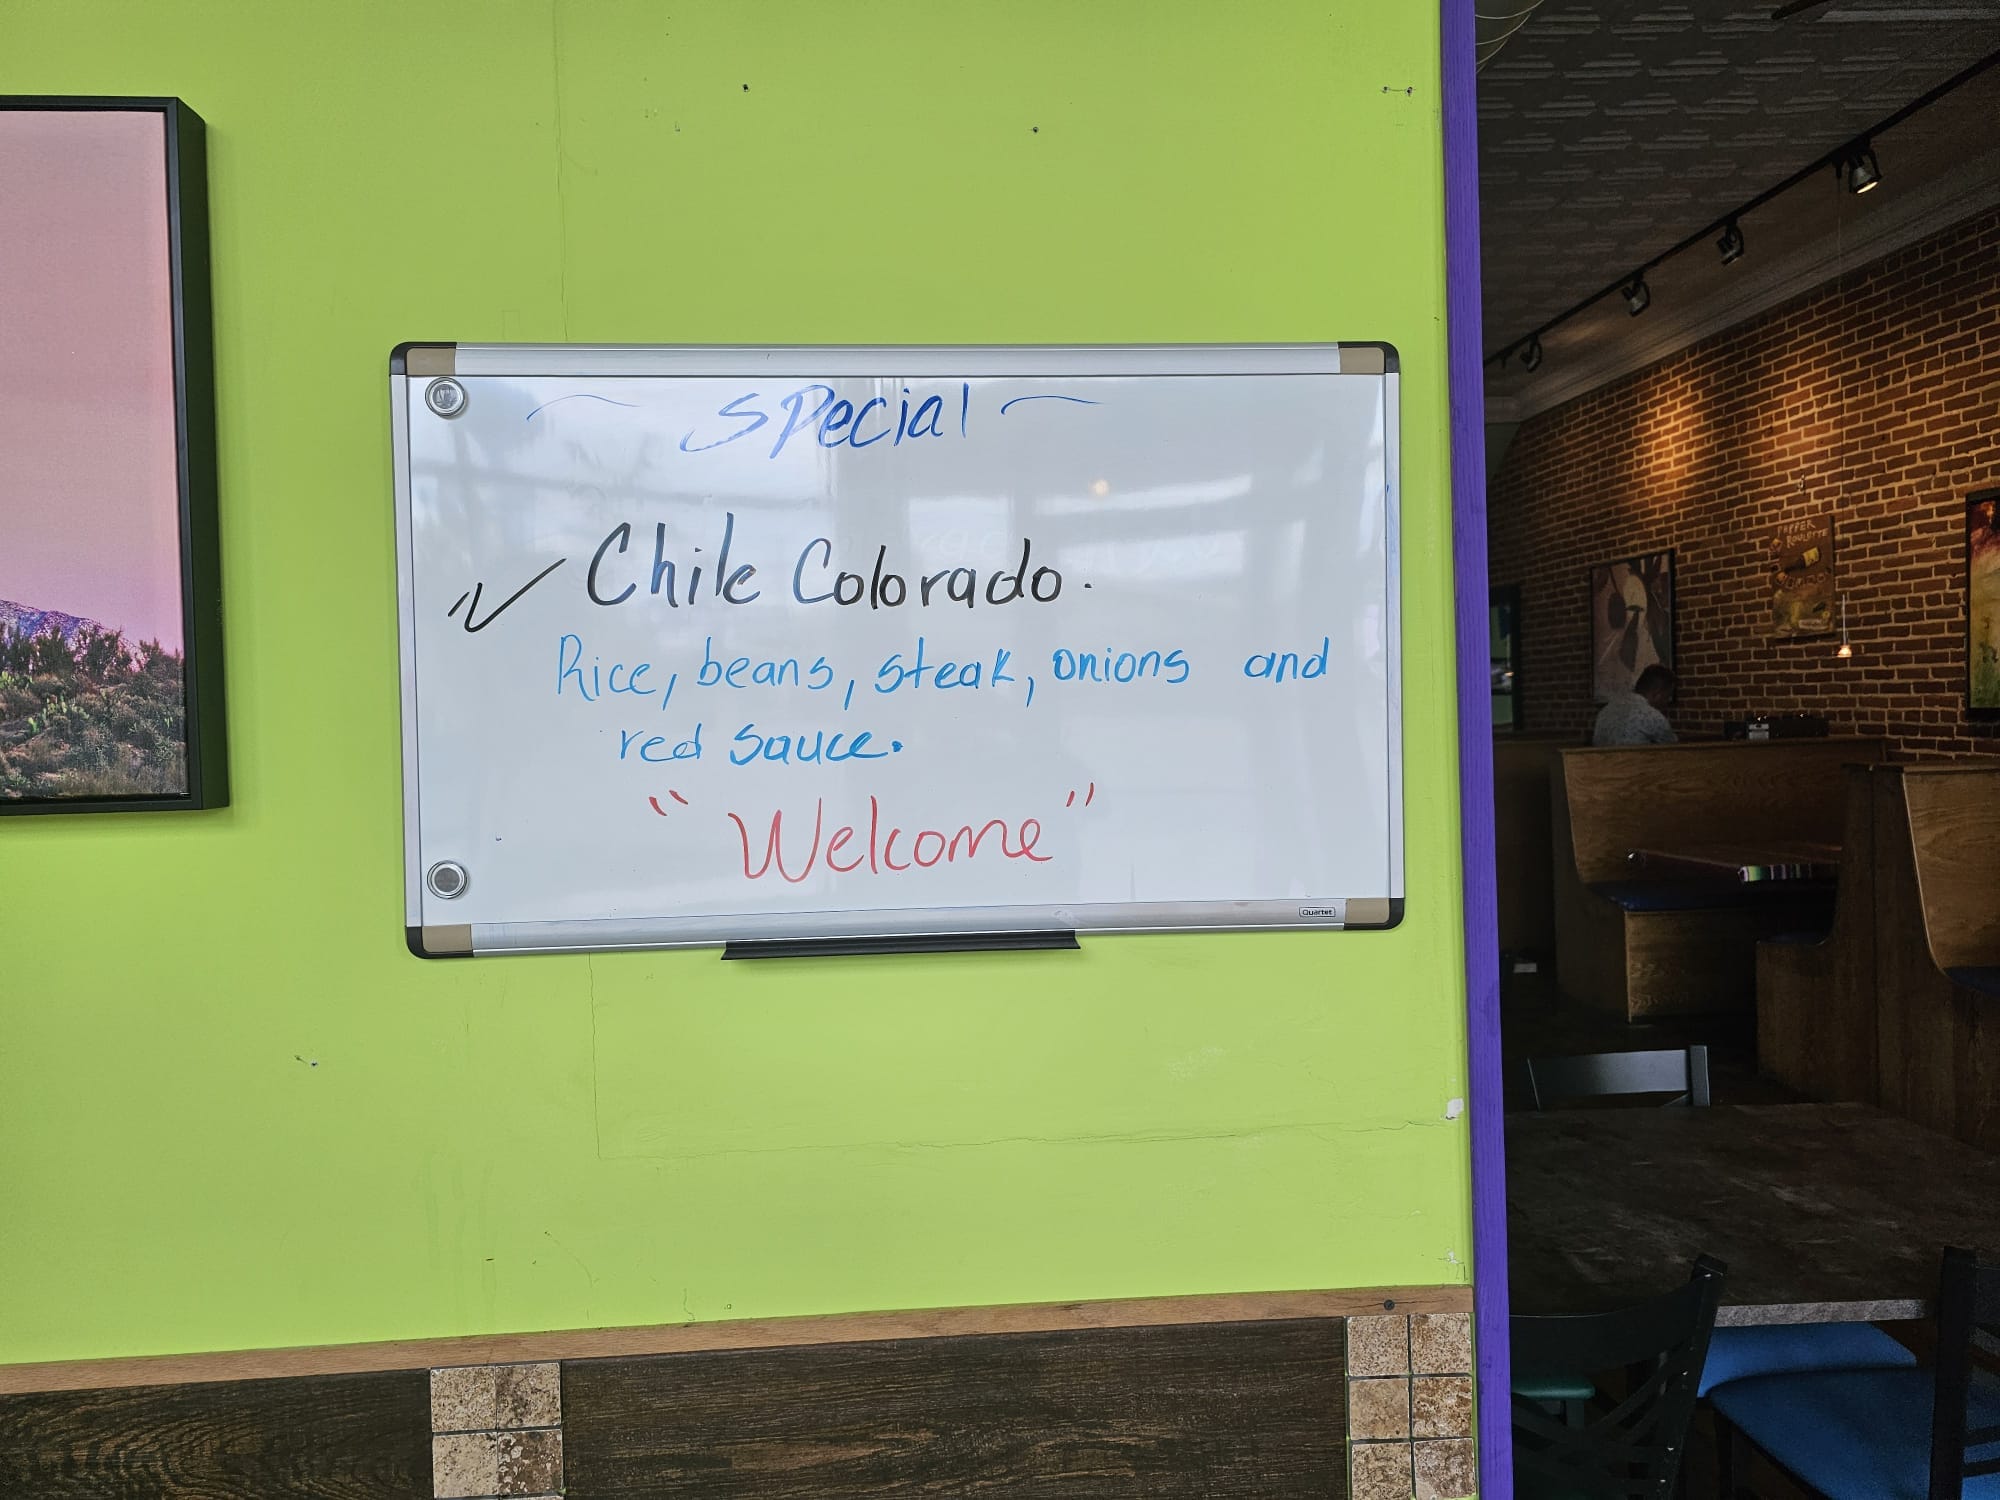 ~ Special ~
✓ Chile Colorado.
Rice, beans, steak, onions and
red sauce.
"Welcome"
Quartet
PEPPER
ROULOTTE